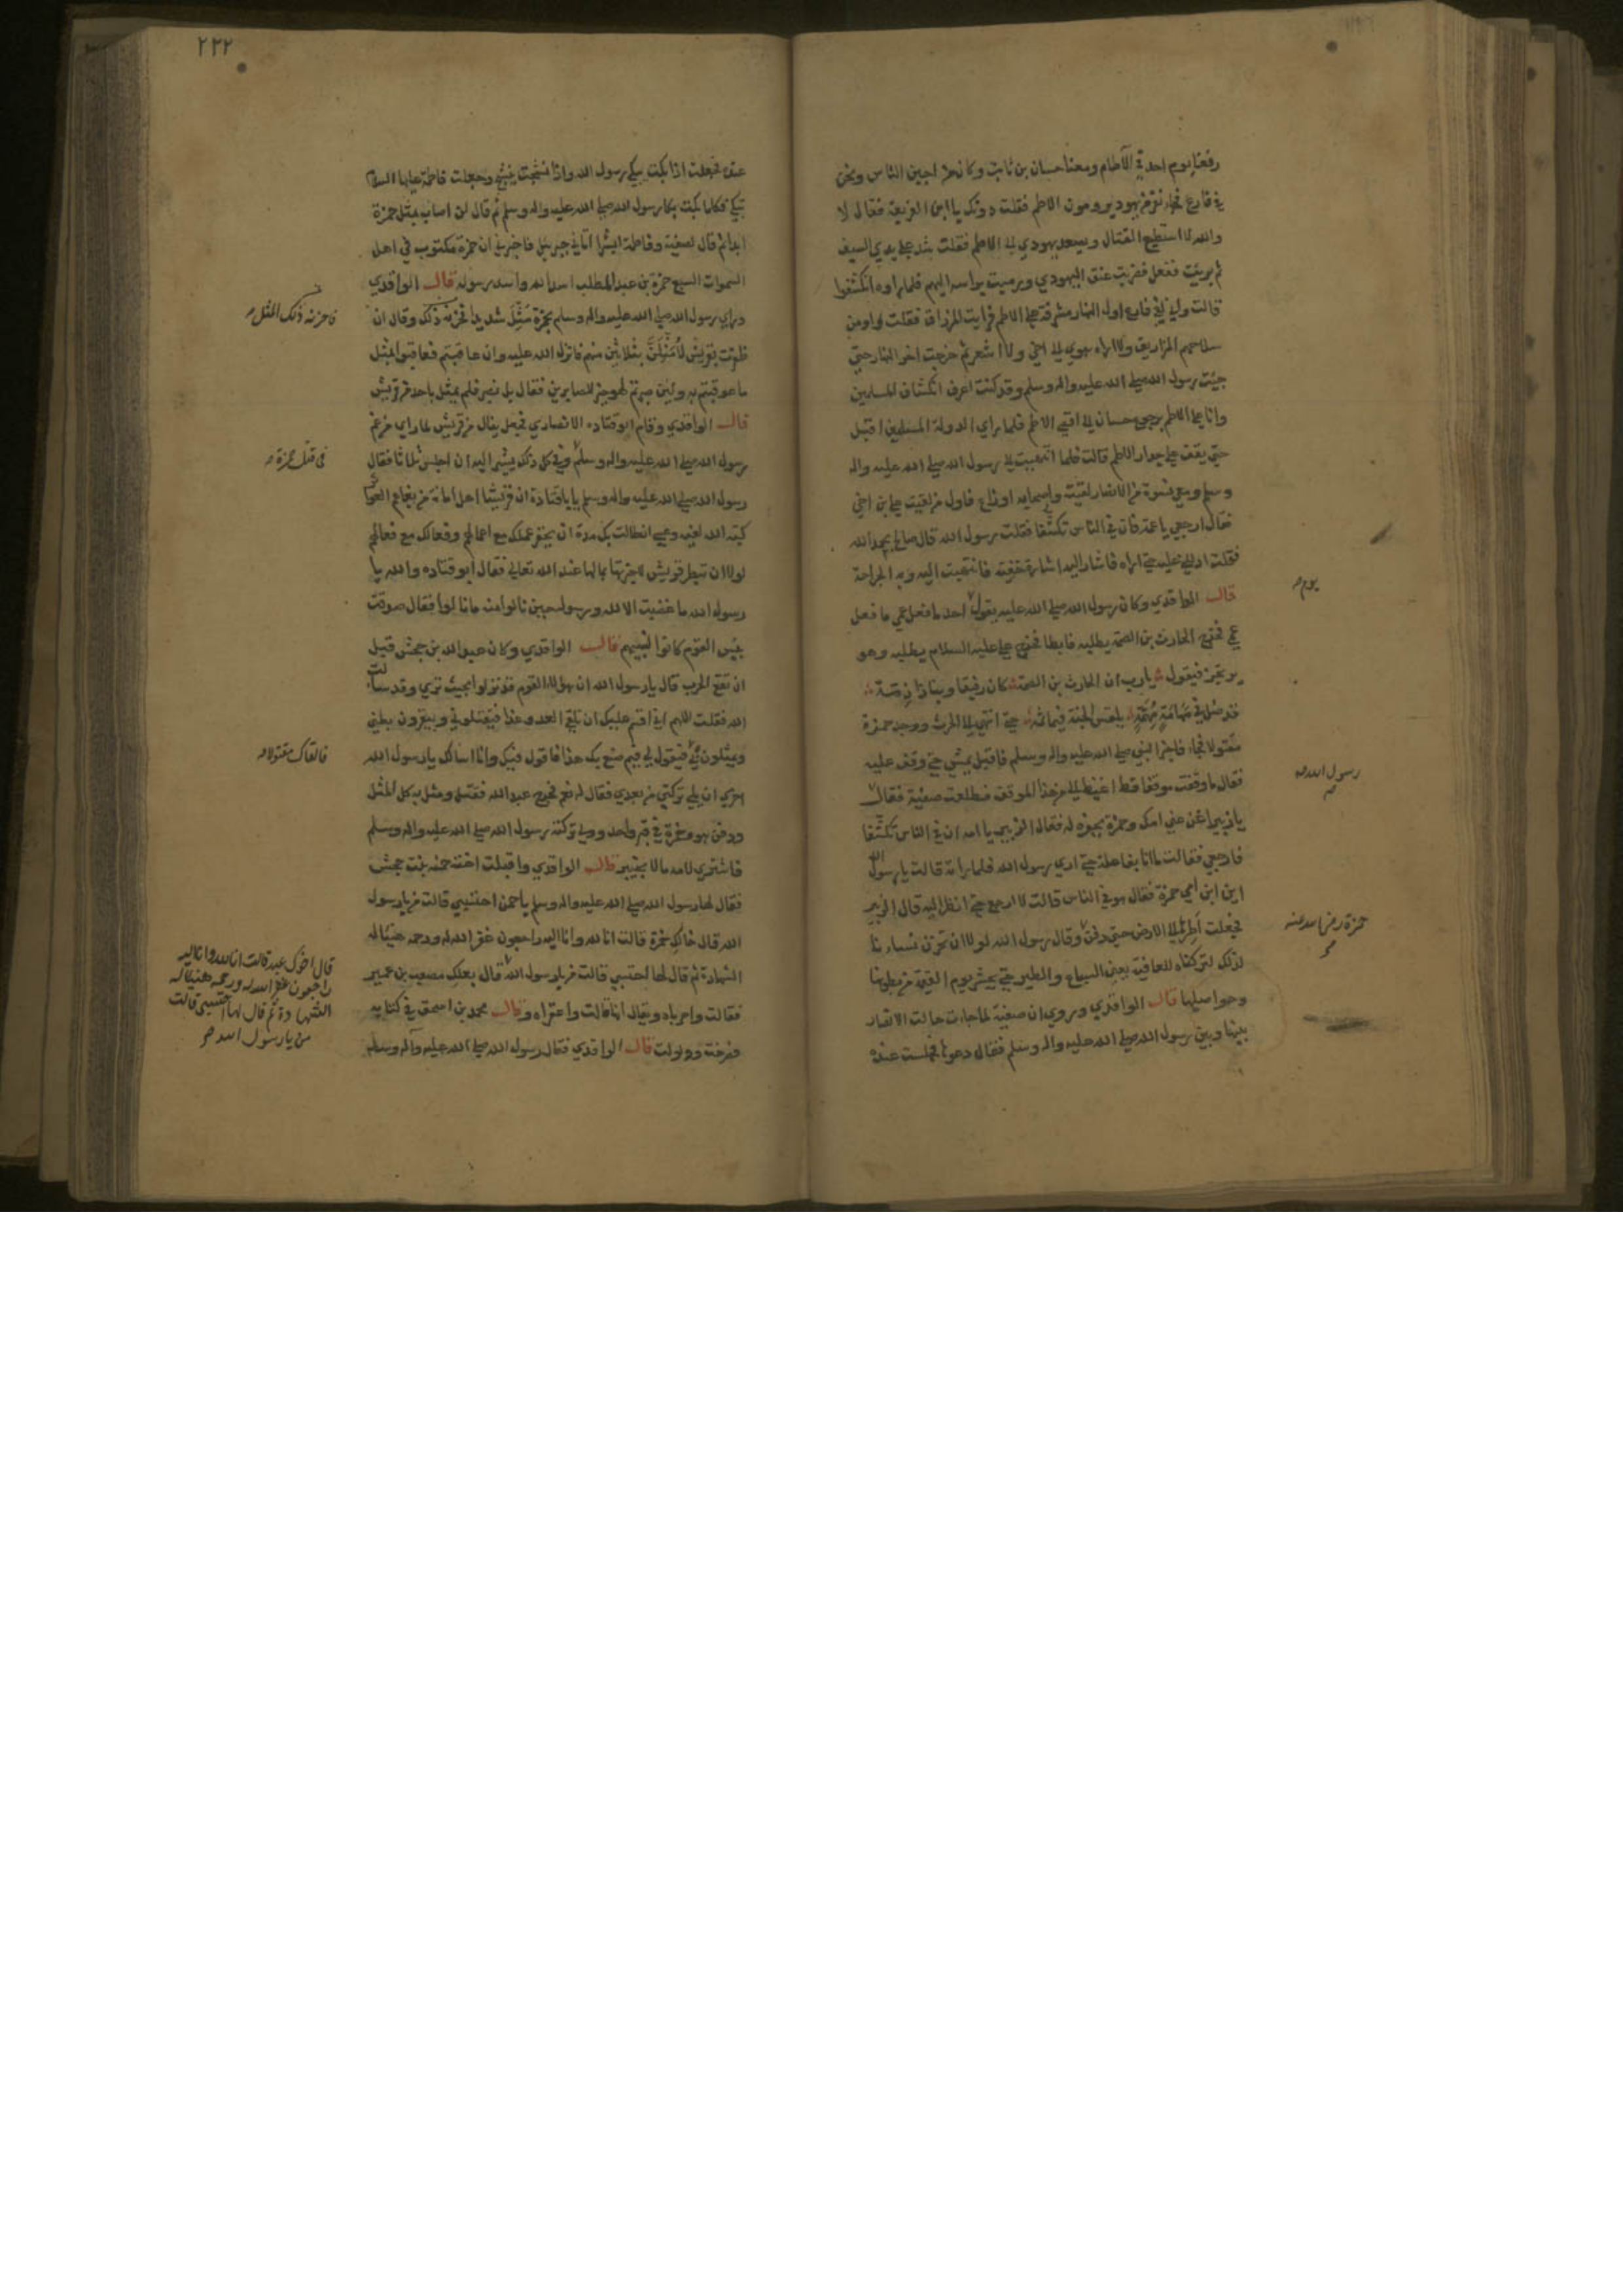 رفعنا يوم احد في الآطام ومعنا حسان بن ثابت وكان من اجبن الناس ونحن
في فارع فجاء نفر من يهود يرومون الاطم فقلت دونك يا ابن الفريعة فقال لا
والله لا استطيع القتال ويصعد يهودي الى الاطم فقلت شد على يدي السيف
ثم برئت ففعل فضربت عنق اليهودي ورميت براسه اليهم فلما راوه انكشفوا
قالت واني لفي فارع اول النهار مشرفة على الاطم فرايت المزراق فقلت اومن
سلاحهم المزاريق ولا اراه يهوي الى اخي ولا اشعر ثم خرجت اخر النهار حتى
جئت رسول الله صلى الله عليه واله وسلم وقد كنت اعرف انكشاف المسلمين
وانا على الاطم يرجع حسان الى اقصى الاطم فلما راى الدولة للمسلمين اقبل
حتى يقف على جدار الاطم قالت فلما انتهيت الى رسول الله صلى الله عليه واله
وسلم ومعي نسوة من الانصار لقيته واصحابه اوزاع فاول من لقيت علي ابن اخي
فقال ارجعي يا عمة فان في الناس تكشفا فقلت رسول الله قال صالح بحمد الله
فقلت ادللني عليه حتى اراه فاشار اليه اشارة خفية فانتهيت اليه وبه الجراحة
قال الواقدي وكان رسول الله صلى الله عليه يقول احد ما فعل عمي ما فعل
يوم
عمي فخرج الحارث بن الصمة يطلبه فابطا فخرج علي عليه السلام يطلبه وهو
يرتجز فيقول يا رب ان الحارث بن الصمة كان رفيقا وبنا ذا ذمة
قد ضل في مهامة مهمة يلتمس الجنة فيما ثمه حتى انتهى الى الحرث ووجد حمزة
مقتولا فجاء فاخبر النبي صلى الله عليه واله وسلم فاقبل يمشي حتى وقف عليه
فقال ما وقفت موقفا قط اغيظ الي من هذا الموقف فطلعت صفية فقال
رسول الله
يا زبير اغن عني امك وحمزة يحفر له فقال الزبير يا امه ان في الناس تكشفا
فارجعي فقالت ما انا بفاعلة حتى ارى رسول الله فلما راته قالت يا رسول الله
اين ابن امي حمزة فقال هو في الناس قالت لا ارجع حتى انظر اليه قال الزبير
فجعلت اطرها الى الارض حتى دفن وقال رسول الله لولا ان تحزن نساءنا
حمزة رضي الله عنه
لذلك لتركناه للعافية يعني السباع والطير حتى يحشر يوم القيمة من بطونها
وحواصلها قال الواقدي وروي ان صفية لما جاءت حالت الانصار
بينها وبين رسول الله صلى الله عليه واله وسلم فقال دعوها فجلست عنده
٢٢٢
عنده فجعلت اذا بكت يبكي رسول الله واذا نشجت ينشج وجعلت فاطمة عليها السلام
تبكي فكلما بكت بكا رسول الله صلى الله عليه واله وسلم ثم قال لن اصاب بمثل حمزة
ابدا ثم قال لصفية وفاطمة ابشرا اتاني جبريل فاخبرني ان حمزة مكتوب في اهل
السموات السبع حمزة بن عبد المطلب اسد الله واسد رسوله قال الواقدي
وراى رسول الله صلى الله عليه واله وسلم بحمزة مثل شديدا فحزنه ذلك وقال ان
فاحزنه ذلك المثل
ظفرت بقريش لامثلن بثلاثين منهم فانزل الله عليه وان عاقبتم فعاقبوا بمثل
ما عوقبتم به ولئن صبرتم لهو خير للصابرين فقال بل نصبر فلم يمثل باحد من قريش
قال الواقدي وقام ابو قتادة الانصاري فجعل ينال من قريش لما راى من غم
رسول الله صلى الله عليه واله وسلم وفي كل ذلك يشير اليه ان اجلس ثلاثا فقال
في قتل حمزة
رسول الله صلى الله عليه واله وسلم يا با قتادة ان قريشا اهل امانة من بغاهم العواثر
كبه الله لفيه وعسى ان طالت بك مدة ان يحقر عملك مع اعمالهم وفعالك مع فعالهم
لولا ان تبطر قريش لاخبرتها بما لها عند الله تعالى فقال ابو قتادة والله يا
رسول الله ما غضبت الا لله ورسوله حين نالوا منه ما نالوا فقال صدقت
بئس القوم كانوا لنبيهم قال الواقدي وكان عبد الله بن جحش قبل
ان تقع الحرب قال يا رسول الله ان هؤلاء القوم قد نزلوا بحيث ترى وقد سالت
الله فقلت اللهم اني اقسم عليك ان نلقى العدو غدا فيقتلوني ويبقرون بطني
ويمثلون بي فتقول لي فيم صنع بك هذا فاقول فيك وانا اسالك يا رسول الله
فالقاك مقتولا
اخرى ان تلي تركتي من بعدي فقال له نعم فخرج عبد الله فقتل ومثل به كل المثل
ودفن هو وحمزة في قبر واحد وولي تركته رسول الله صلى الله عليه واله وسلم
فاشترى لامه مالا بخيبر قال الواقدي واقبلت اخته حمنة بنت جحش
فقال لها رسول الله صلى الله عليه واله وسلم يا حمن احتسبي قالت من يا رسول
الله قال خالك حمزة قالت انا لله وانا اليه راجعون غفر الله له ورحمه هنيئا له
الشهادة ثم قال لها احتسبي قالت من يا رسول الله قال بعلك مصعب بن عمير
قال اخوك عبد قالت انا لله وانا اليه
راجعون غفر الله له ورحمه هنيئا له
الشهادة ثم قال لها احتسبي قالت
من يا رسول الله
فقالت واحرباه ويقال انها قالت واعقراه وقال محمد بن اسحق في كتابه
فصرخت وولولت قال الواقدي فقال رسول الله صلى الله عليه واله وسلم